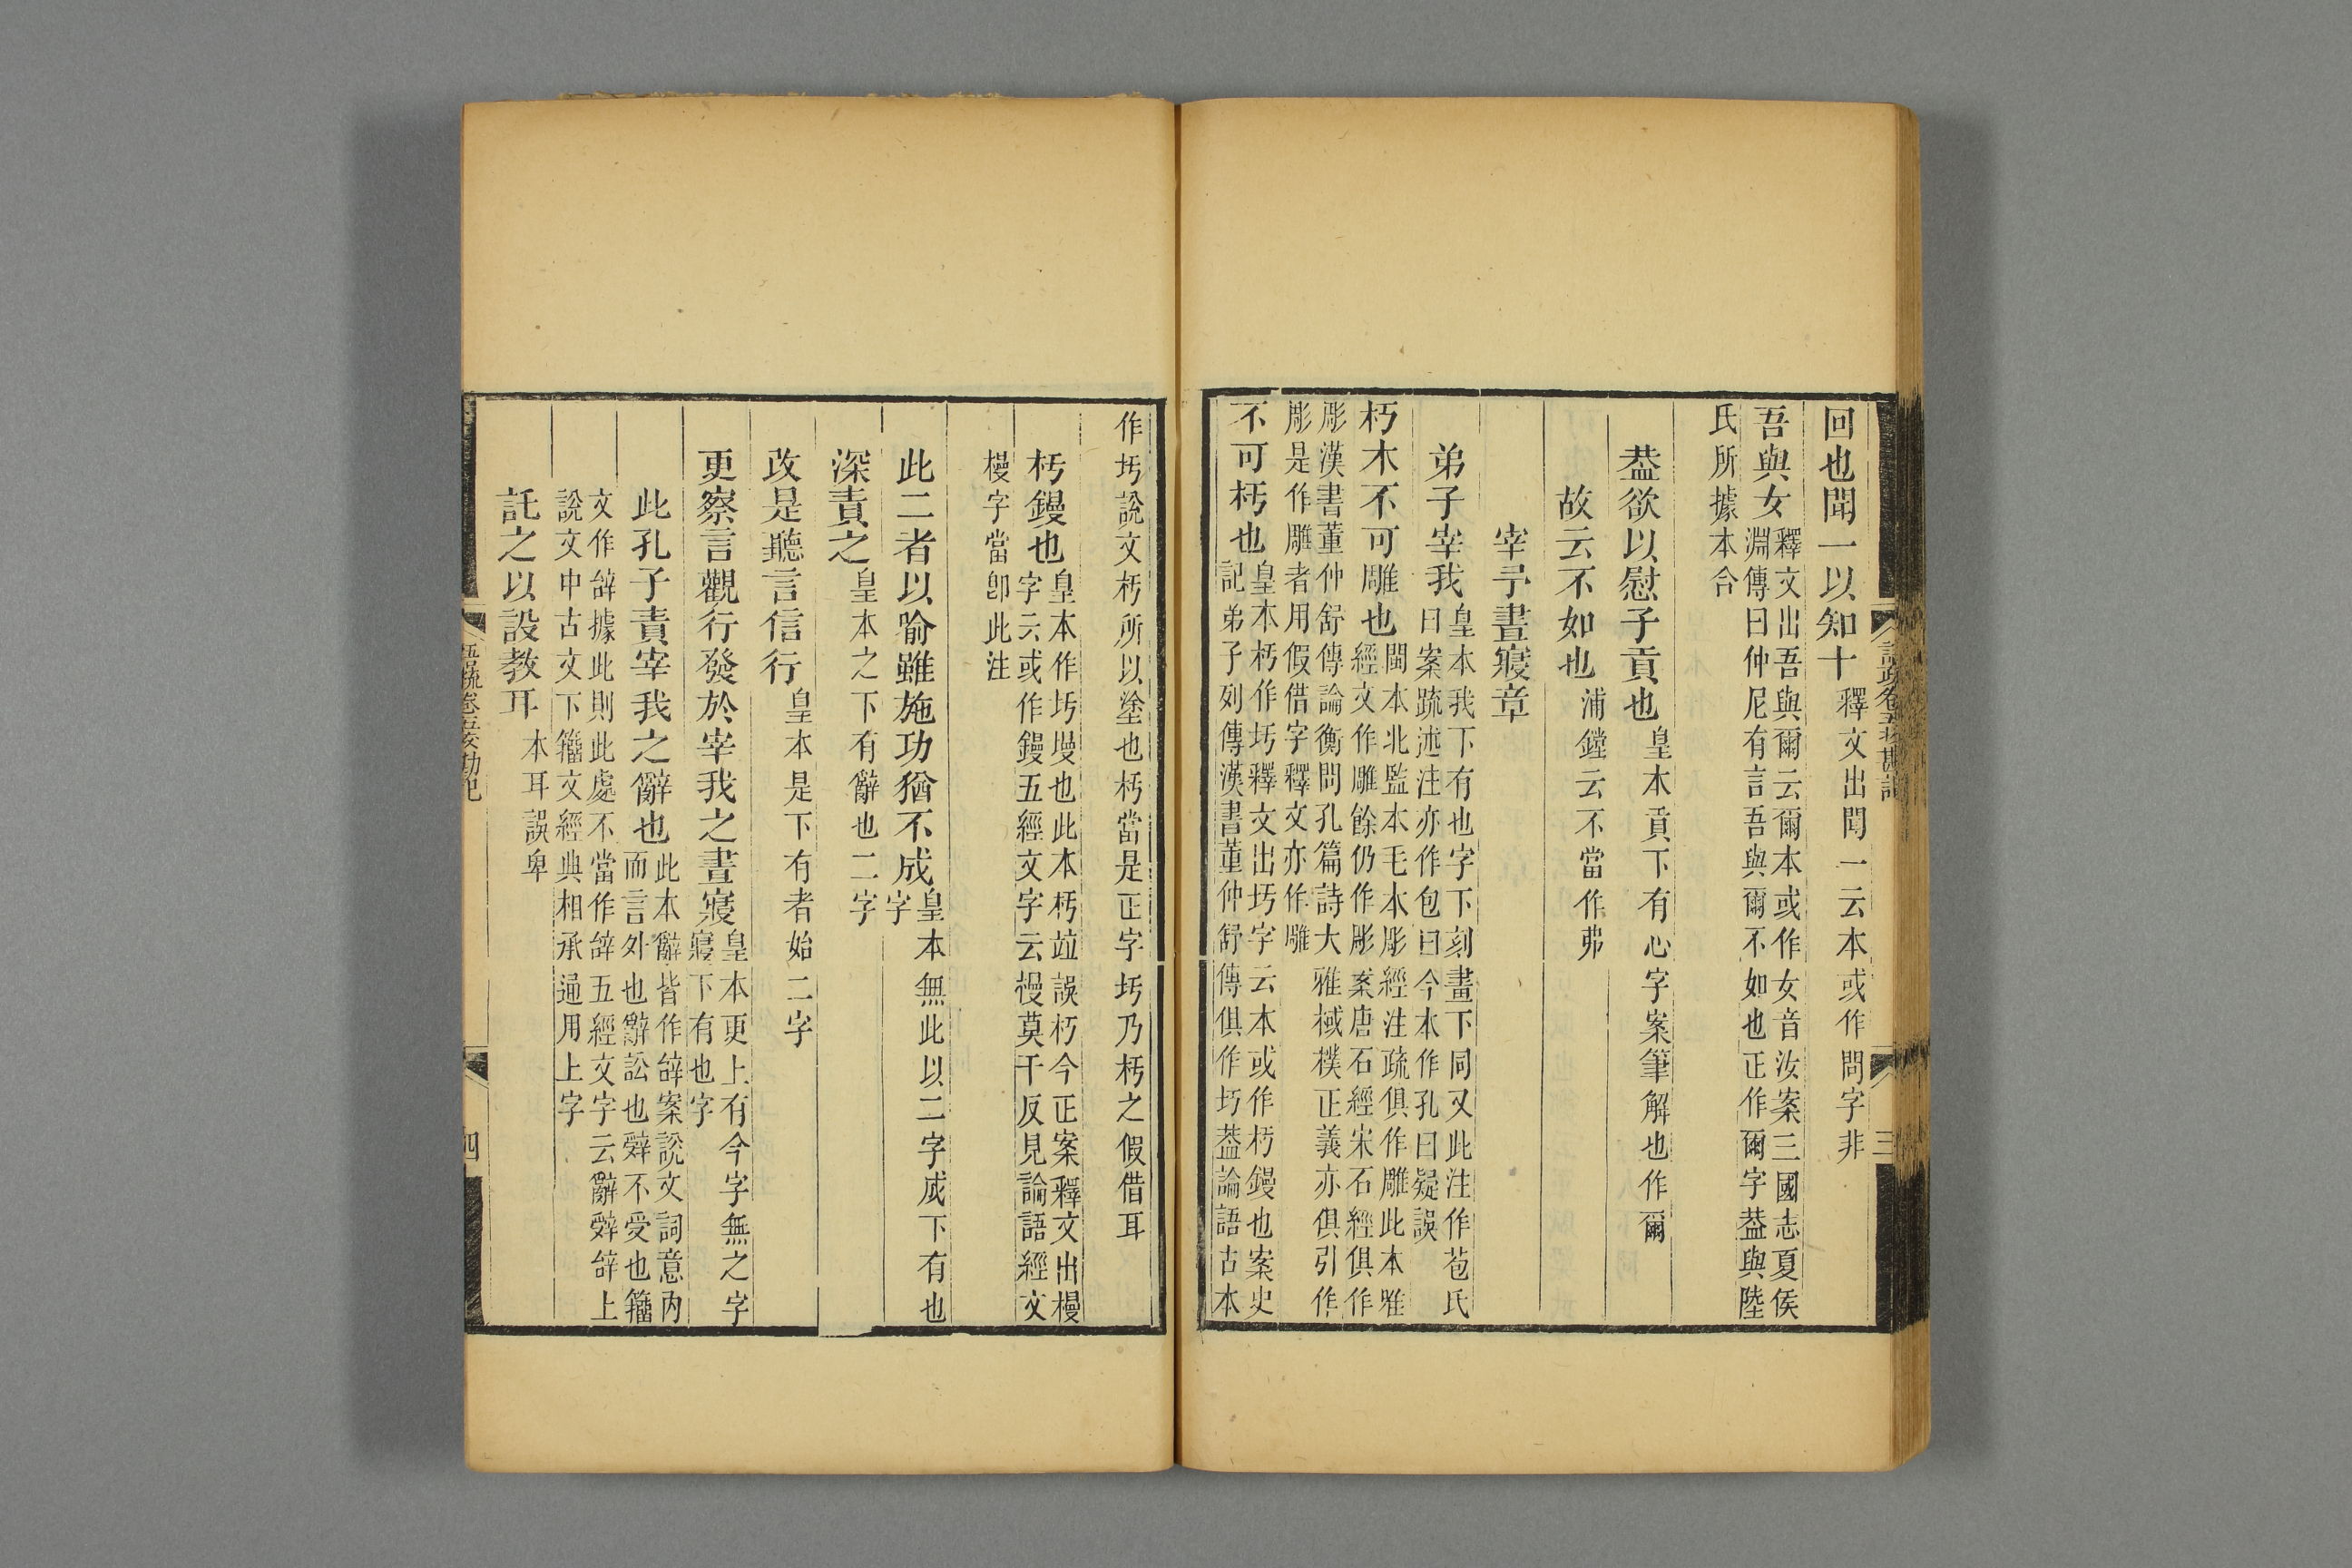 回也聞一以知十釋文出聞一云本或作問字非
吾與女釋文出吾與爾云爾本或作女音汝案三國志夏侯
淵傳曰仲尼有言吾與爾不如也正作爾字葢與陸
氏所據本合
葢欲以慰子貢也皇本貢下有心字案筆解也作爾
故云不如也浦鏜云不當作弗
宰予晝寢章
弟子宰我皇本我下有也字下刻畫下同又此注作苞氏
曰案疏述注亦作包曰今本作孔曰疑誤
朽木不可雕也閩本北監本毛本彫經注疏俱作雕此本雅
經文作雕餘仍作彫案唐石經宋石經俱作
彫漢書董仲舒傳論衡問孔篇詩大雅棫樸正義亦俱引作
彫是作雕者用假借字釋文亦作雕
不可杇也皇本朽作圬釋文出圬字云本或作杇鏝也案史
記弟子列傳漢書董仲舒傳俱作圬葢論語古本
作圬說文杇所以塗也杇當是正字圬乃杇之假借耳
杇鏝也皇本作圬墁也此本杇竝誤朽今正案釋文出槾
字云或作鏝五經文字云槾莫干反見論語經文
槾字當卽此注
此二者以喻雖施功猶不成皇本無此以二字成下有也
字
深責之皇本之下有辭也二字
改是聽言信行皇本是下有者始二字
更察言觀行發於宰我之晝寢皇本更上有今字無之字
寢下有也字
此孔子責宰我之辭也此本辭皆作辤案說文詞意內
而言外也辭訟也辤不受也籒
文作辝據此則此處不當作辤五經文字云辭辤辝上
說文中古文下籒文經典相承通用上字
託之以設教耳本耳誤卑